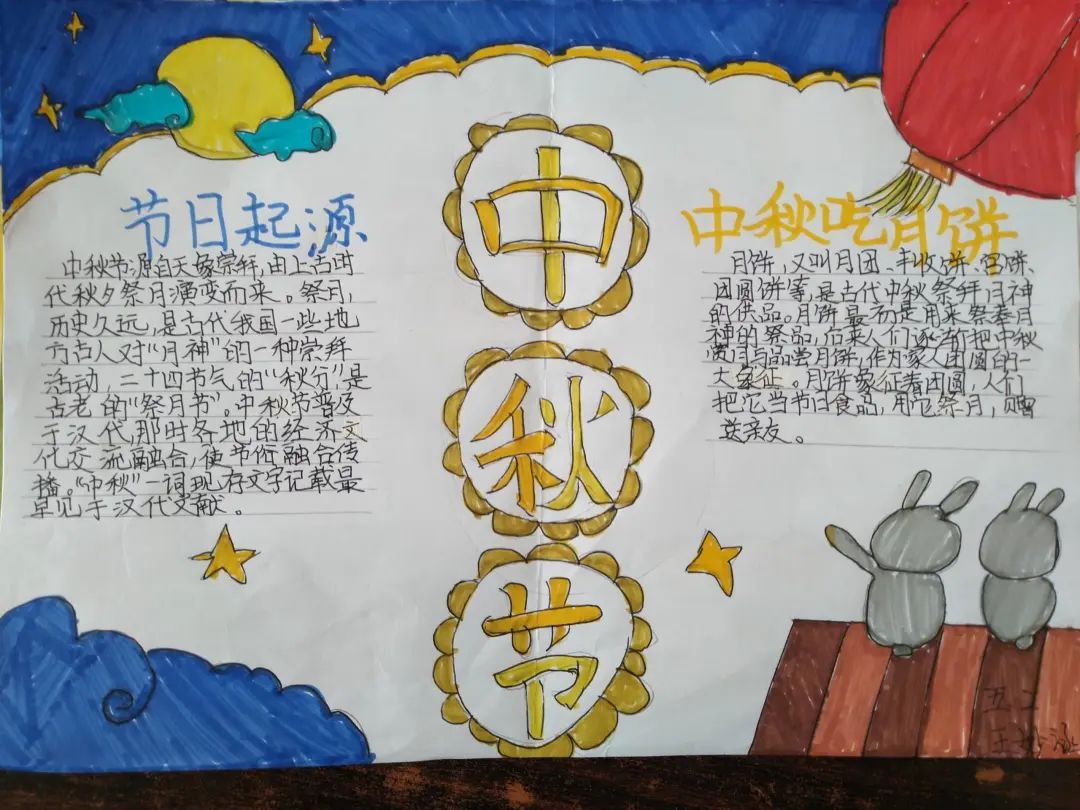 节日起源
中秋节源自天象崇拜,由上古时
代秋夕祭月演变而来。祭月,
历史久远,是古代我国一些地
方古人对“月神”的一种崇拜
活动,二十四节气的“秋分”是
古老的“祭月节”。中秋节普及
于汉代,那时各地的经济文
化交流融合,使节俗融合传
播。“中秋”一词现存文字记载最
早见于汉代文献。
中
秋
节
中秋吃月饼
月饼,又叫月团、丰收饼、宫饼、
团圆饼等,是古代中秋祭拜月神
的供品。月饼最初是用来祭奉月
神的祭品,后来人们逐渐把中秋
赏月与品尝月饼,作为家人团圆的一
大象征。月饼象征着团圆,人们
把它当节日食品,用它祭月,赠
送亲友。
五二
王